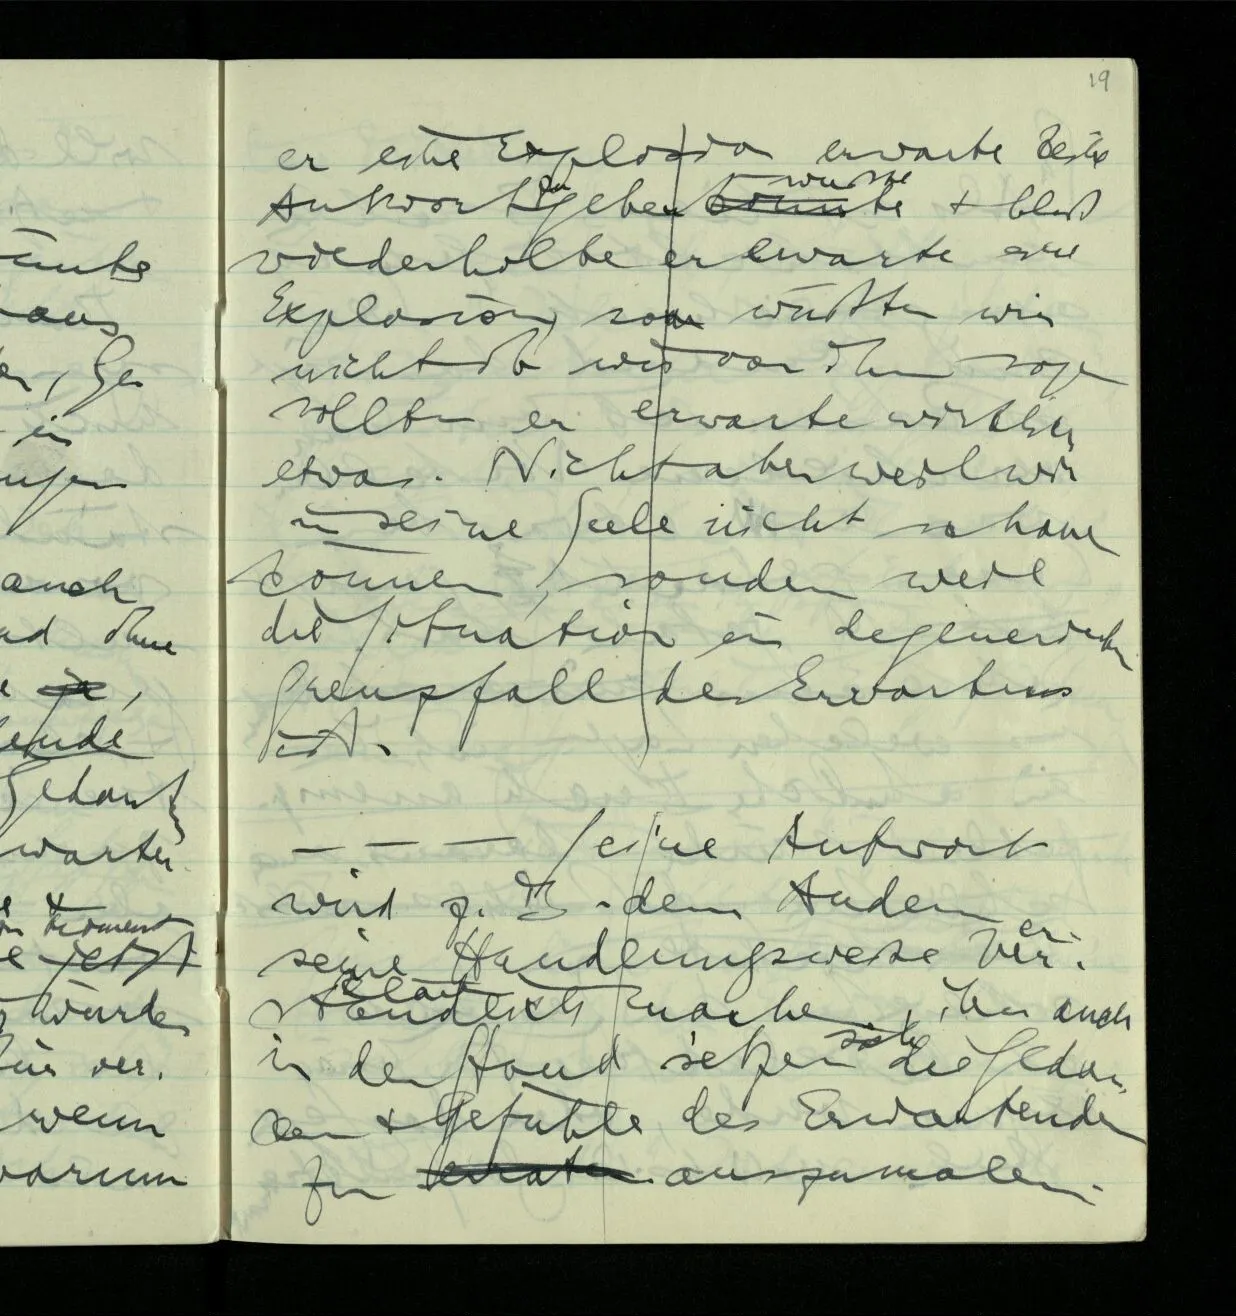 19
er eine Explosion erwarte keine
Antwort zu geben konnte wusste + bloß
wiederholte er erwarte eine
Explosion, so wüßten wir
nicht ob wir von ihm sagen
sollten er erwarte wirklich
etwas. Nicht aber weil wir
in seine Seele nicht schauen
können, sondern weil
die Situation ein degenerierter
Grenzfall des Erwartens
ist.
– – – Seine Antwort
wird z.B. dem Andern
seine Handlungsweise ver-er-
ständlich klären machen, ihn auch
in den Stand setzen sich die Gedan
ken + Gefühle des Erwartenden
zu erraten auszumalen.
ünke
aus
, Ge
ein
auch
ad ohne
e ,
ende
Gedank
warten.
moment
e jetzt
würde
für ver.
wenn
warum